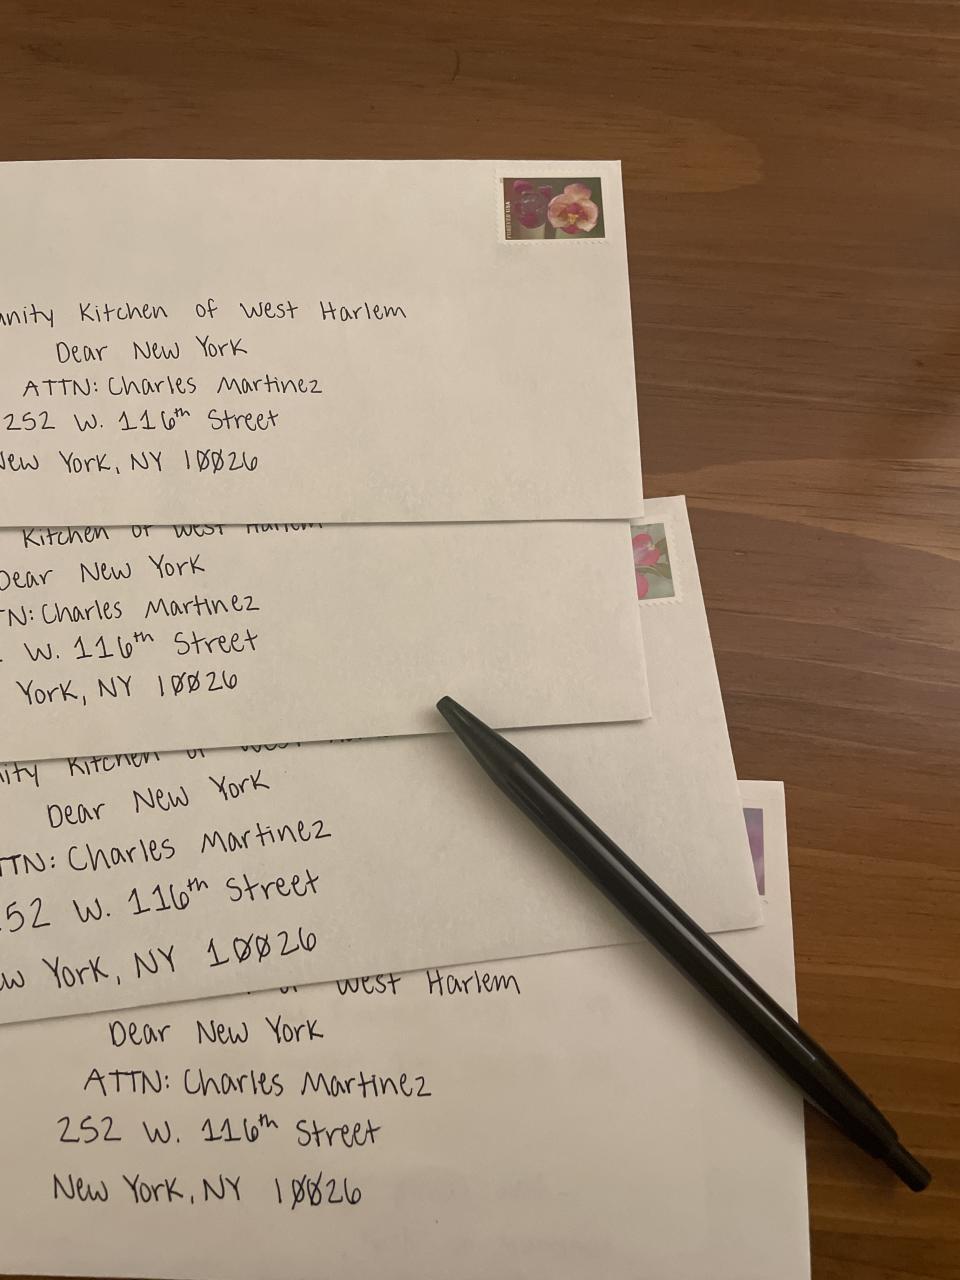 FOREVER USA
Kitchen of West Harlem
Dear New York
ATTN: Charles Martinez
252 W. 116th Street
New York, NY 10026
Kitchen of West Harlem
Dear New York
Charles Martinez
W. 116th Street
York, NY 10026
Kitchen of West
Dear New York
ATTN: Charles Martinez
252 W. 116th Street
New York, NY 10026
of West Harlem
Dear New York
ATTN: Charles Martinez
252 W. 116th Street
New York, NY 10026